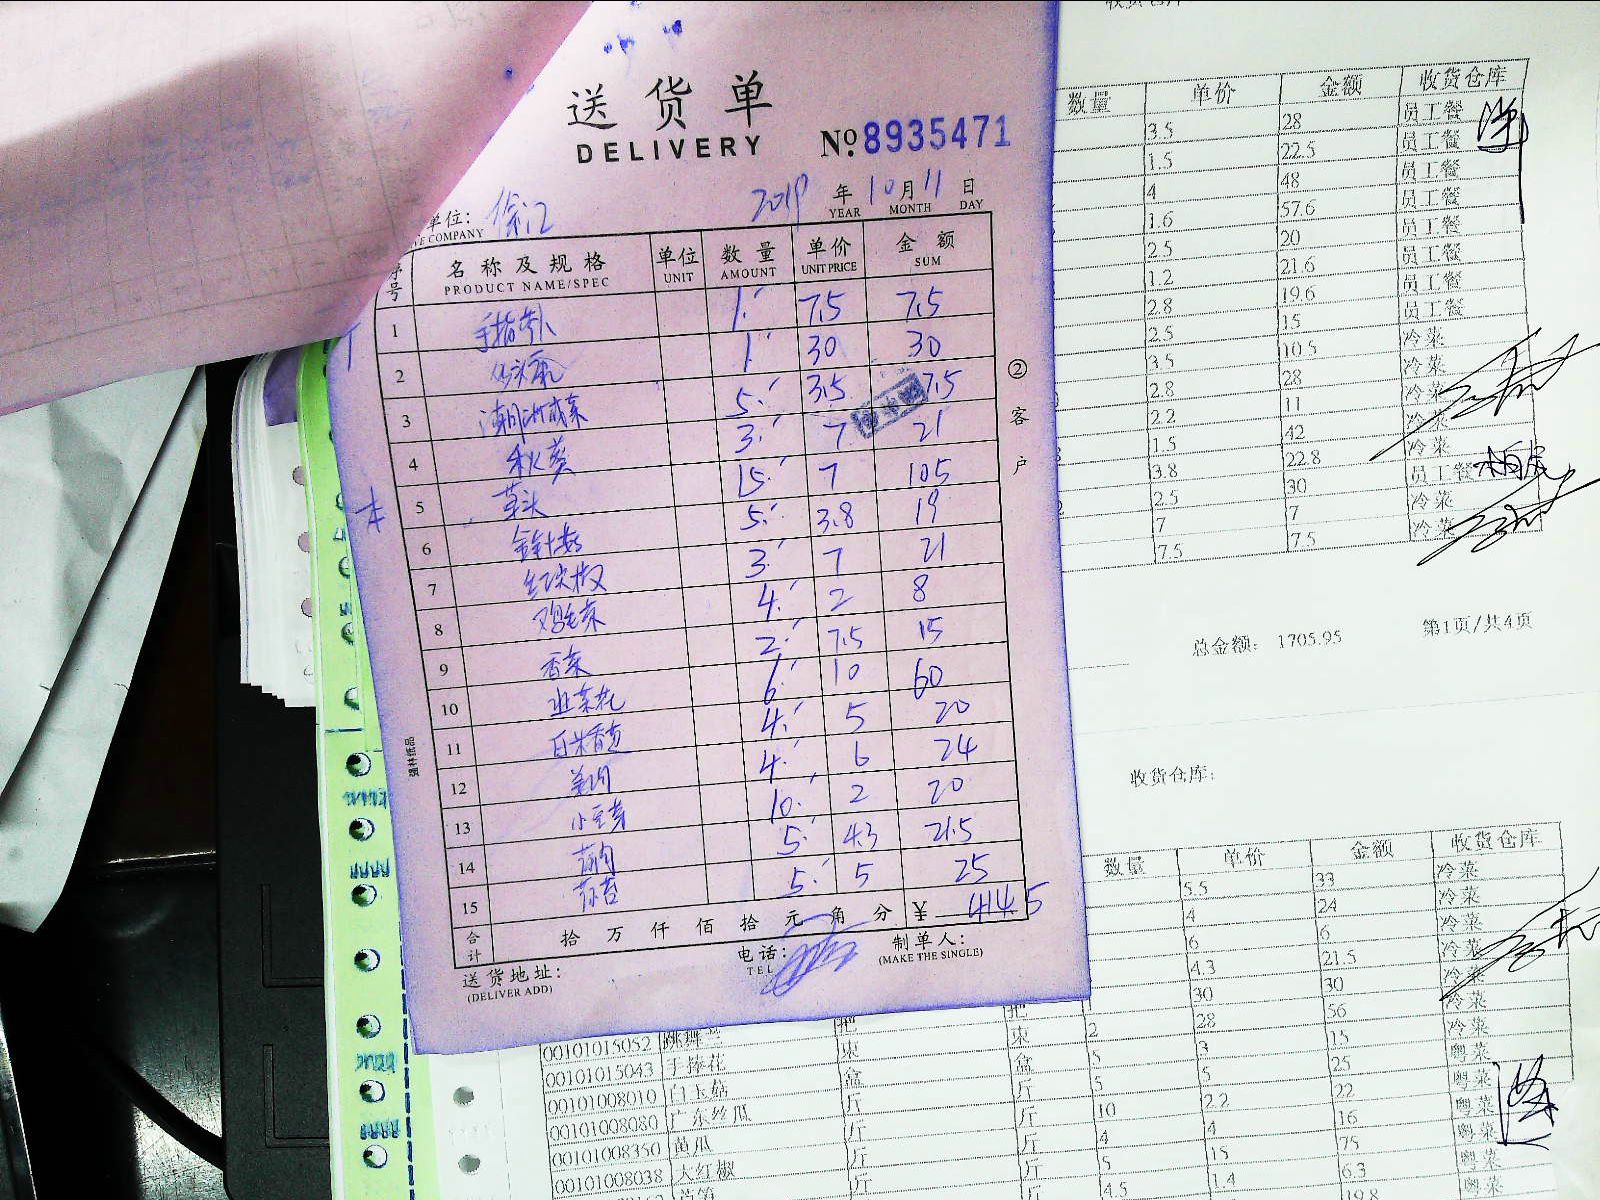 送货单
DELIVERY
No. 8935471
单位: 徐汇 2019 年 10 月 11 日
VE COMPANY YEAR MONTH DAY
序号 名称及规格 单位 数量 单价 金额
PRODUCT NAME/SPEC UNIT AMOUNT UNIT PRICE SUM
1 手指 1 7.5 7.5
2 1 30 30
3 潮州咸菜 5 3.5 17.5
4 秋葵 3 7 21
5 草头 15 7 105
6 金针菇 5 3.8 19
7 红尖椒 3 7 21
8 鸡毛菜 4 2 8
9 香菜 2 7.5 15
10 韭菜花 6 10 60
11 白米 4 5 20
12 4 6 24
13 小豆芽 10 2 20
14 5 4.3 21.5
15 5 5 25
合计 拾 万 仟 佰 拾 元 角 分 ¥ 414.5
送货地址: 电话: 制单人:
(DELIVER ADD) TEL (MAKE THE SINGLE)
②客户
强林纸品
数量 单价 金额 收货仓库
3.5 28 员工餐
1.5 22.5 员工餐
4 48 员工餐
1.6 57.6 员工餐
2.5 20 员工餐
1.2 21.6 员工餐
2.8 19.6 员工餐
2.5 15 员工餐
3.5 10.5 冷菜
2.8 28 冷菜
2.2 11 冷菜
1.5 42 冷菜
3.8 22.8 冷菜
2.5 30 员工餐
7 7 冷菜
7.5 7.5 冷菜
总金额: 1705.95 第1页/共4页
收货仓库:
数量 单价 金额 收货仓库
5.5 33 冷菜
4 24 冷菜
6 6 冷菜
4.3 21.5 冷菜
30 30 冷菜
2 28 56 冷菜
5 3 15 冷菜
5 5 25 粤菜
10 2.2 22 粤菜
4 4 16 粤菜
5 15 75 粤菜
4.5 1.4 6.3 粤菜
19.8
00101015052 把
00101015043 手捧花 束
00101008010 白玉菇 盒
00101008080 广东丝瓜 斤
00101008350 黄瓜 斤
00101008038 大红椒 斤